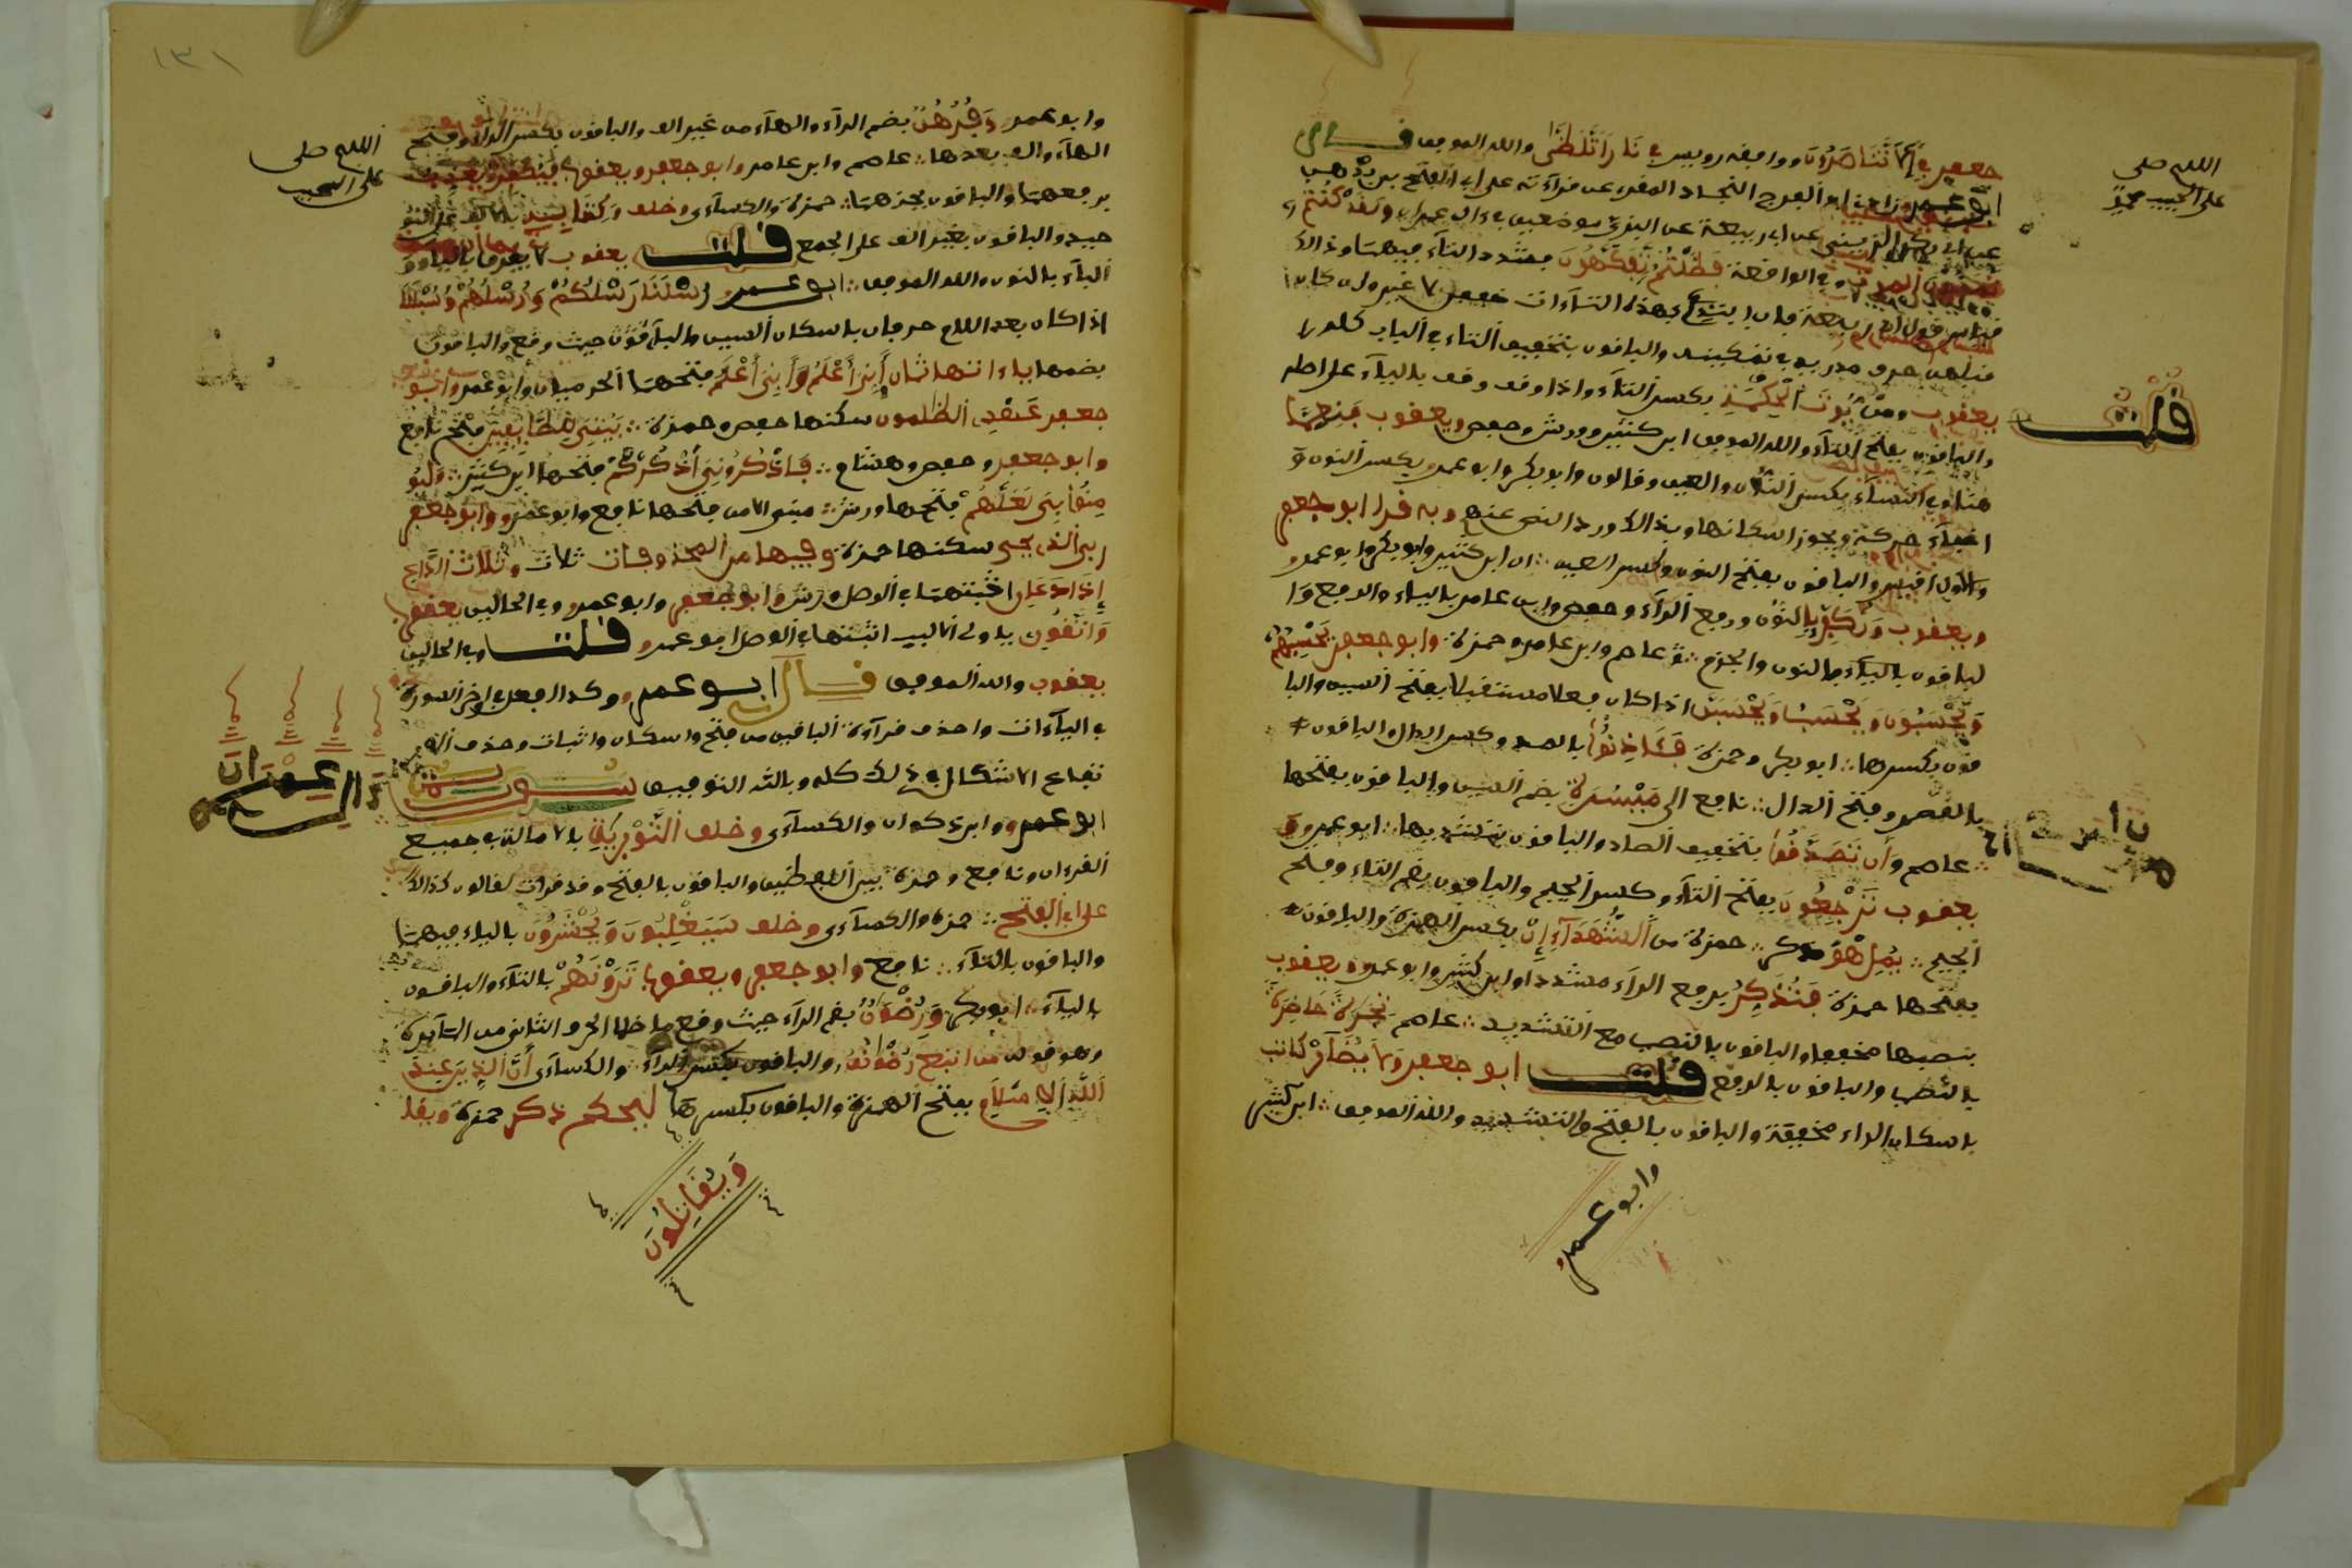 اللهم صل
على الحبيب محمد
جعفر في لا تناصرون ووافقه رويس في نارا تلظى والله الموفق قال
ابو عمرو وزادني ابو الفرج النجاد المقرى عن قرآءته على ابى الفتح بن بدهن
عن ابى بكر الزينبي عن ابى ربيعة عن البزى موضعين في ءال عمران ولقد كنتم
وفي الواقعة فظلتم تفكهون فشدد التآء فيهما وذلك
قياس قول ابى ربيعة فان ابتدئ بهذه التاءات خففن لا غير وان كان
قبلهن حرف مد زيد في تمكينه والباقون بتخفيف التاء في الباب كله
قلت
يعقوب ومن يوت الحكمة بكسر التآء واذا وقف وقف باليآء على اصله
والباقون بفتح التآء والله الموفق ابن كثير وورش وحفص ويعقوب فنعما
هنا وفي النساء بكسر النون والعين وقالون وابو بكر وابو عمرو بكسر النون و
اخفآء حركة ويجوز اسكانها وبذلك ورد النص عنهم وبه قرا ابو جعفر
والاول اقيس والباقون بفتح النون وكسر العين ابن كثير وابو بكر وابو عمرو
ويعقوب ونكفر بالنون ورفع الرآء وحفص وابن عامر بالياء والرفع وا
لباقون بالنون والجزم عاصم وابن عامر وحمزة وابو جعفر يحسبهم
ويحسبون ويحسب ويحسبن اذا كان فعلا مستقبلا بفتح السين والبا
قون بكسرها ابو بكر وحمزة فئاذنوا بالمد وكسر الذال والباقون
بالقصر وفتح الذال نافع الى ميسرة بضم السين والباقون بفتحها
عاصم وان تصدقوا بتخفيف الصاد والباقون بتشديدها ابو عمرو و
يعقوب ترجعون بفتح التآء وكسر الجيم والباقون بضم التاء وفتح
الجيم يمل هو ذكر حمزة من الشهدآء ان بكسر الهمزة والباقون
بفتحها حمزة فتذكر برفع الرآء مشددا وابن كثير وابو عمرو ويعقوب
بنصبها مخففا والباقون بالنصب مع التشديد عاصم تجرة حاضرة
بالنصب والباقون بالرفع قلت ابو جعفر ولا يضآر كاتب
باسكان الراء مخففة والباقون بالفتح والتشديد والله الموفق ابن كثير
وابو عمرو
١٣١
اللهم صل
على الحبيب
وابو عمرو فرهن بضم الرآء والهآء من غير الف والباقون بكسر الراء وفتح
الهآء والف بعدها عاصم وابن عامر وابو جعفر ويعقوب فيغفر ويعذب
برفعهما والباقون بجزمهما حمزة والكسآءى وخلف وكتابه بالالف على التو
حيد والباقون بغير الف على الجمع قلت يعقوب لا يفرق باليآء و
اليآء بالنون والله الموفق ابو عمرو رسلنا رسلكم ورسلهم وسبلنا
اذا كان بعد اللام حرفان باسكان السين والبآء حيث وقع والباقون
بضمها ياءاتها ثمان انى اعلم وانى اعلم فتحهما الحرميان وابو عمرو وابو
جعفر عهدى الظلمون سكنها حفص وحمزة بيتى للطايفين فتح نافع
وابو جعفر وحفص وهشام فاذكرونى اذكركم فتحها ابن كثير وليو
منوا بى لعلهم فتحها ورش منى الا من فتحها نافع وابو عمرو وابو جعفر
ربى الذى يحيى سكنها حمزة وفيها من المحذوفات ثلاث الداع
اذا دعان اثبتهما في الوصل ورش وابو جعفر وابو عمرو وفي الحالين يعقوب
واتقون ياولى الالبب اثبتها في الوصل ابو عمرو قلت وفي الحالين
يعقوب والله الموفق قال ابو عمرو وكذا افعل في اخر السورة
في اليآءات واحذف قرآءة الباقين من فتح واسكان واثبات وحذف
تفاع الاشكال في ذلك كله وبالله التوفيق سورة
ءال عمران
ابو عمرو وابن ذكوان والكسآءى وخلف التورية بالامالة في جميع
القرءان ونافع وحمزة بين اللفظين والباقون بالفتح وقد قرات لقالون كذلك
على ابى الفتح حمزة والكسآءى وخلف سيغلبون ويحشرون بالياء فيهما
والباقون بالتآء نافع وابو جعفر ويعقوب ترونهم بالتآء والباقون
باليآء ابو بكر ورضوان بضم الراء حيث وقع ما خلا الحرف الثانى من المآيدة
وهو قوله من اتبع رضوانه والباقون بكسر الرآء والكسآءى ان الذين عند
الله الاسلام بفتح الهمزة والباقون بكسرها ليحكم ذكر حمزة ويقا
ويقاتلون